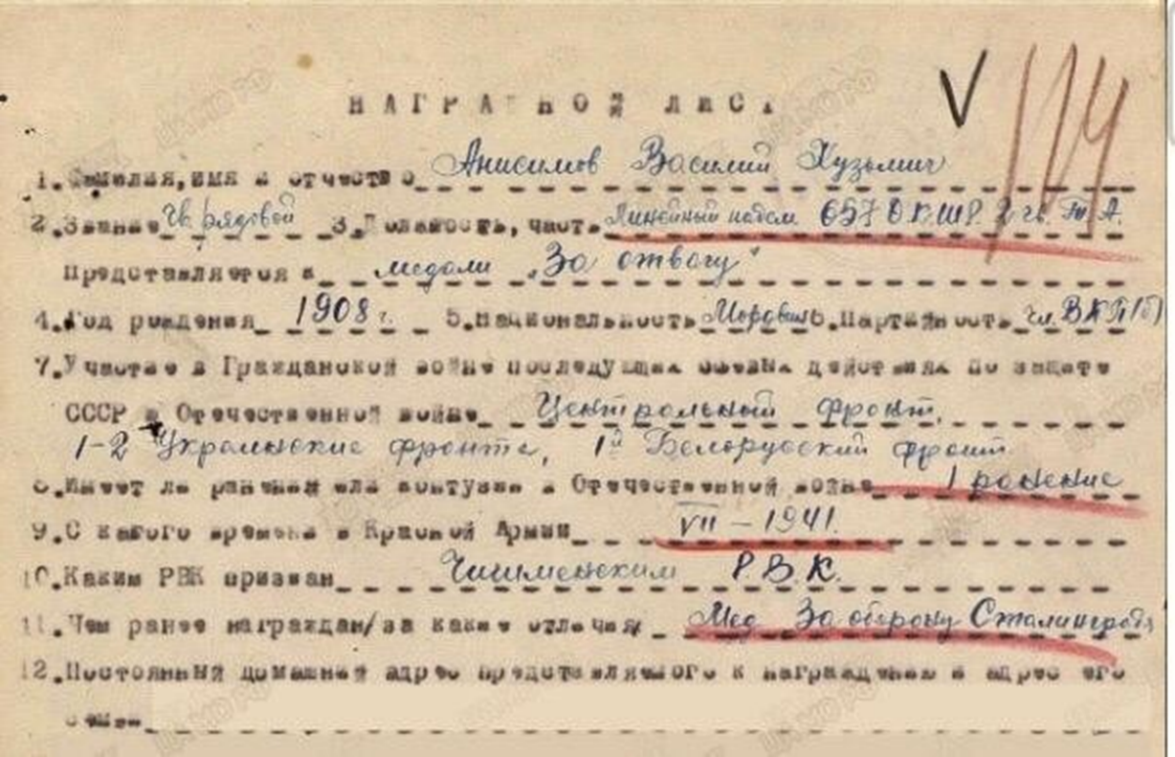 НАГРАДНОЙ ЛИСТ V 114
1. Фамилия, имя и отчество Анисимов Василий Кузьмич
2. Звание гв. рядовой 3. Должность, часть Линейный 657 2 гв. Т. А.
Представляется к медали „За отвагу"
4. Год рождения 1908 г. 5. Национальность 6. Партийность чл. ВКП(б)
7. Участие в Гражданской войне последующих боевых действиях по защите
СССР в Отечественной войне Центральный фронт,
1-2 Украинские фронта, 1й Белорусский фронт
8. Имеет ли ранения или контузии в Отечественной войне 1 ранение
9. С какого времени в Красной Армии VII – 1941.
10. Каким РВК призван Чишменским Р.В.К.
11. Чем ранее награждан/за какие отличия/ Мед За оборону Сталинграда
12. Постоянный домашний адрес представляемого к награждению и адрес его
семьи